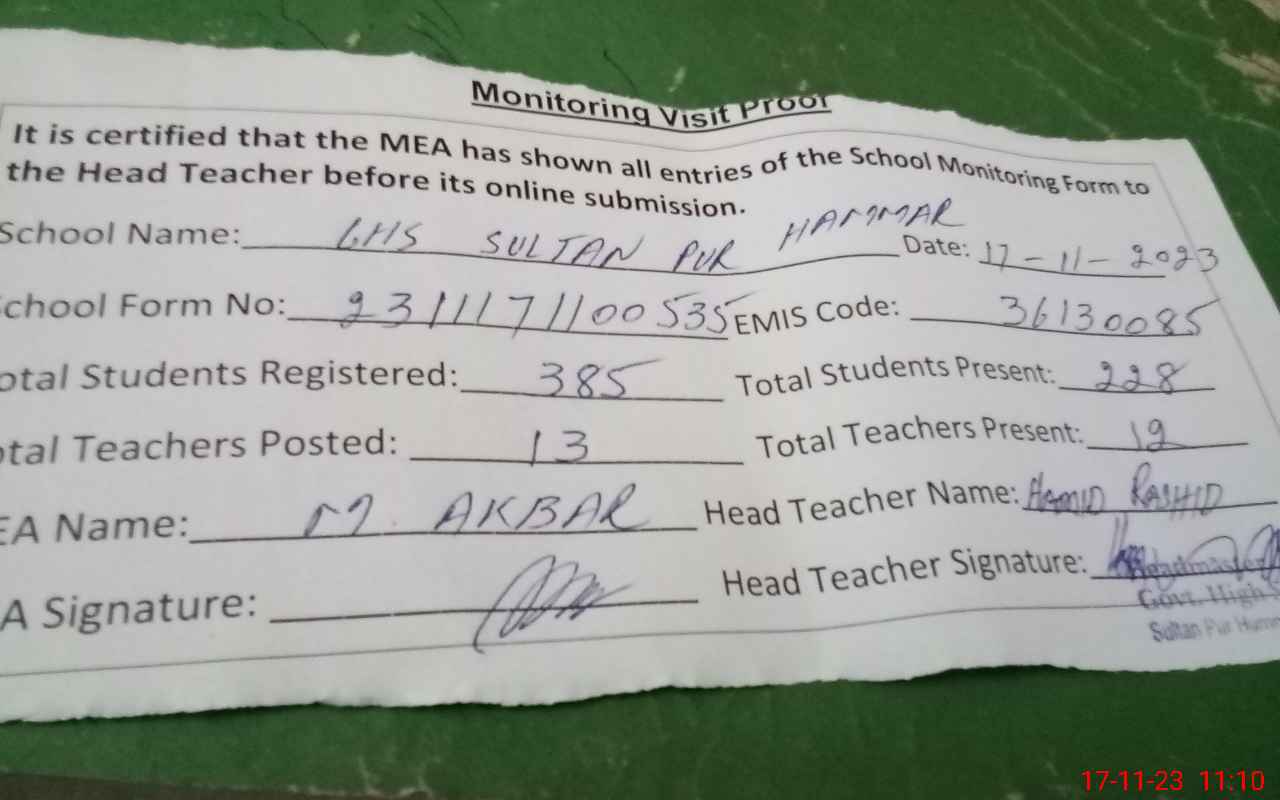 Monitoring Visit Proof
It is certified that the MEA has shown all entries of the School Monitoring Form to
the Head Teacher before its online submission.
School Name: GHS SULTAN PUR HAMMAR Date: 17-11-2023
chool Form No: 2311171100535 EMIS Code: 36130085
otal Students Registered: 385 Total Students Present: 228
otal Teachers Posted: 13 Total Teachers Present: 12
EA Name: M. AKBAR Head Teacher Name: HAMID RASHID
A Signature: Head Teacher Signature:
Headmaster
Govt. High S
Sultan Pur Humm
17-11-23 11:10